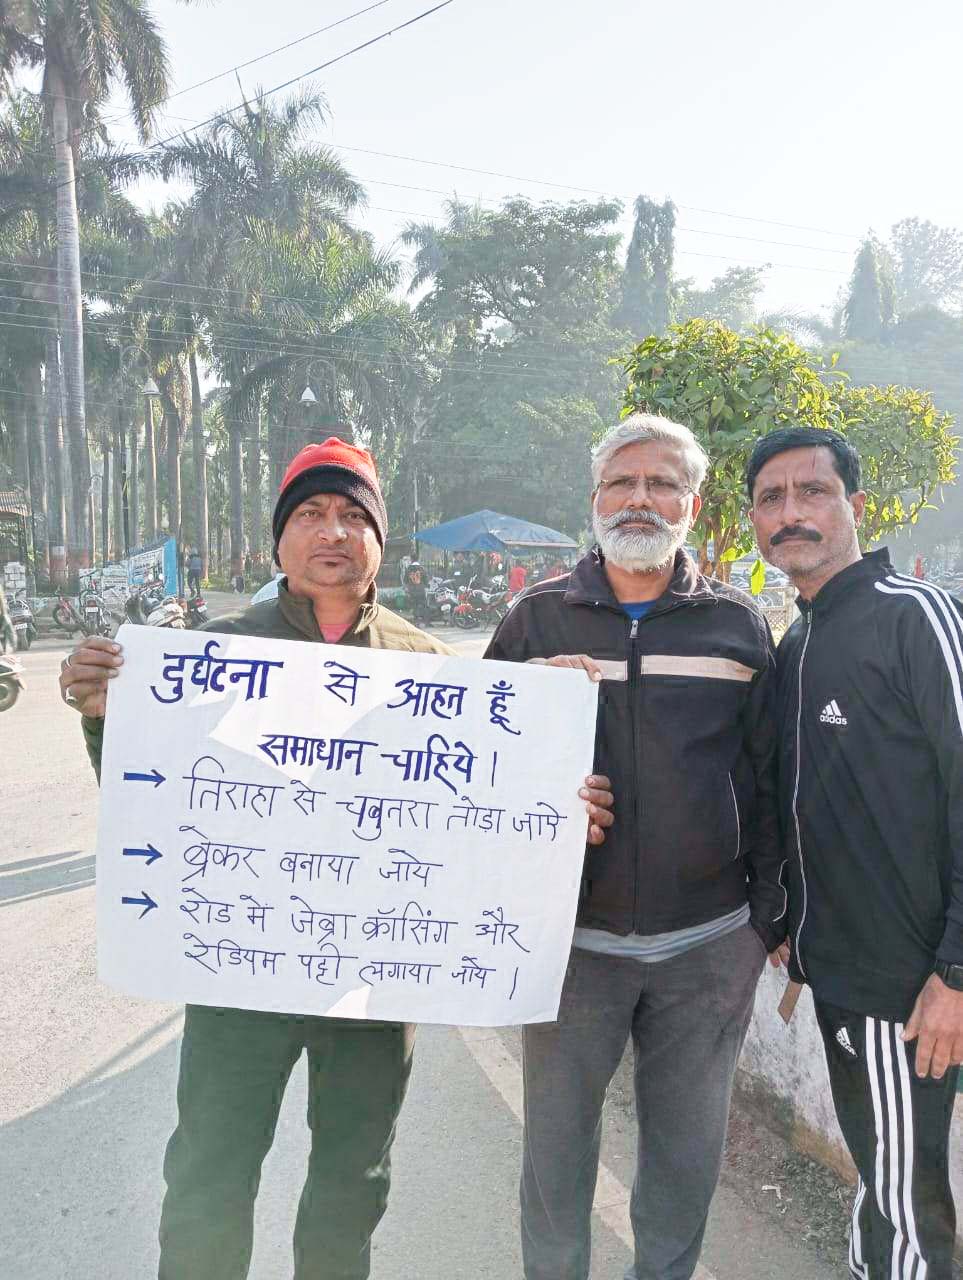 दुर्घटना से आहत हूँ
समाधान चाहिये।
→ तिराहा से चबुतरा तोड़ा जाऐ
→ ब्रेकर बनाया जाये
→ रोड में जेब्रा क्रॉसिंग और
रेडियम पट्टी लगाया जाये।
adidas